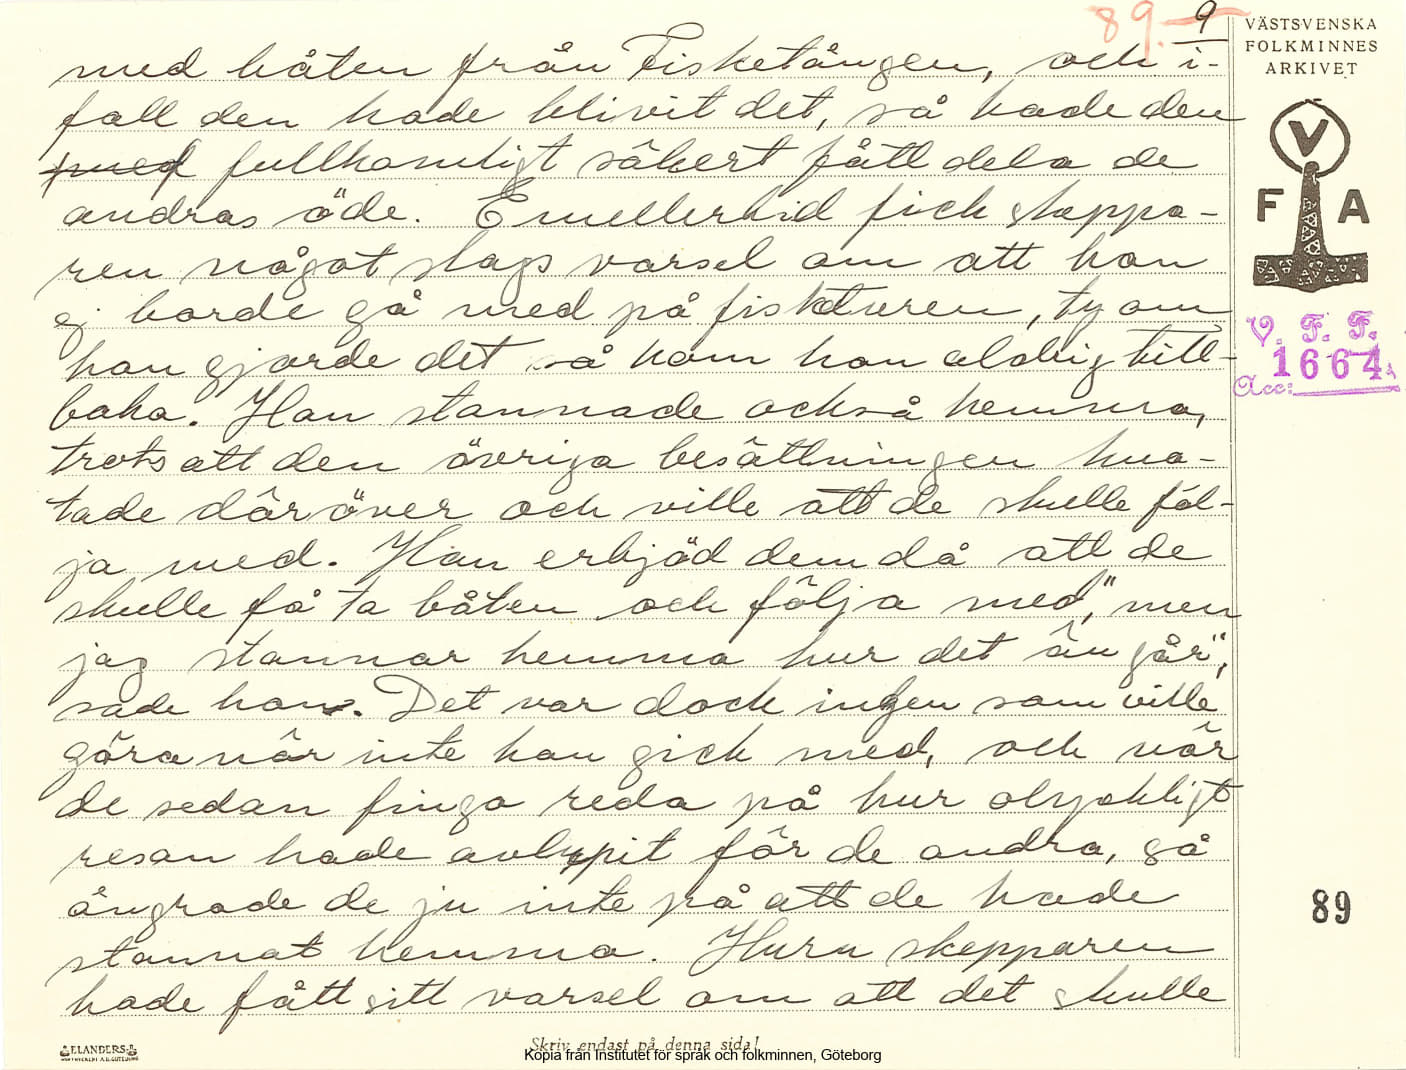 89. 9
VÄSTSVENSKA
FOLKMINNES
ARKIVET
med båten från Fisketången, och i-
fall den hade blivit det, så hade den
med fullkomligt säkert fått dela de
andras öde. Emellertid fick skeppa-
ren något slags varsel om att han
ej borde gå med på fisketuren, ty om
han gjorde det så kom han aldrig till-
baka. Han stannade också hemma,
trots att den övriga besättningen kna-
tade däröver och ville att de skulle föl-
ja med. Han erbjöd dem då att de
skulle få ta båten och följa med, "men
jag stannar hemma hur det än går",
sade han. Det var dock ingen som ville
göra när inte han gick med, och när
de sedan fingo reda på hur olyckligt
resan hade avlupit för de andra, så
ångrade de ju inte på att de hade
stannat hemma. Huru skepparen
hade fått sitt varsel om att det skulle
V
F A
V. F. F.
1664
Acc:
89
ELANDERS
Skriv endast på denna sida!
Kopia från Institutet för språk och folkminnen, Göteborg